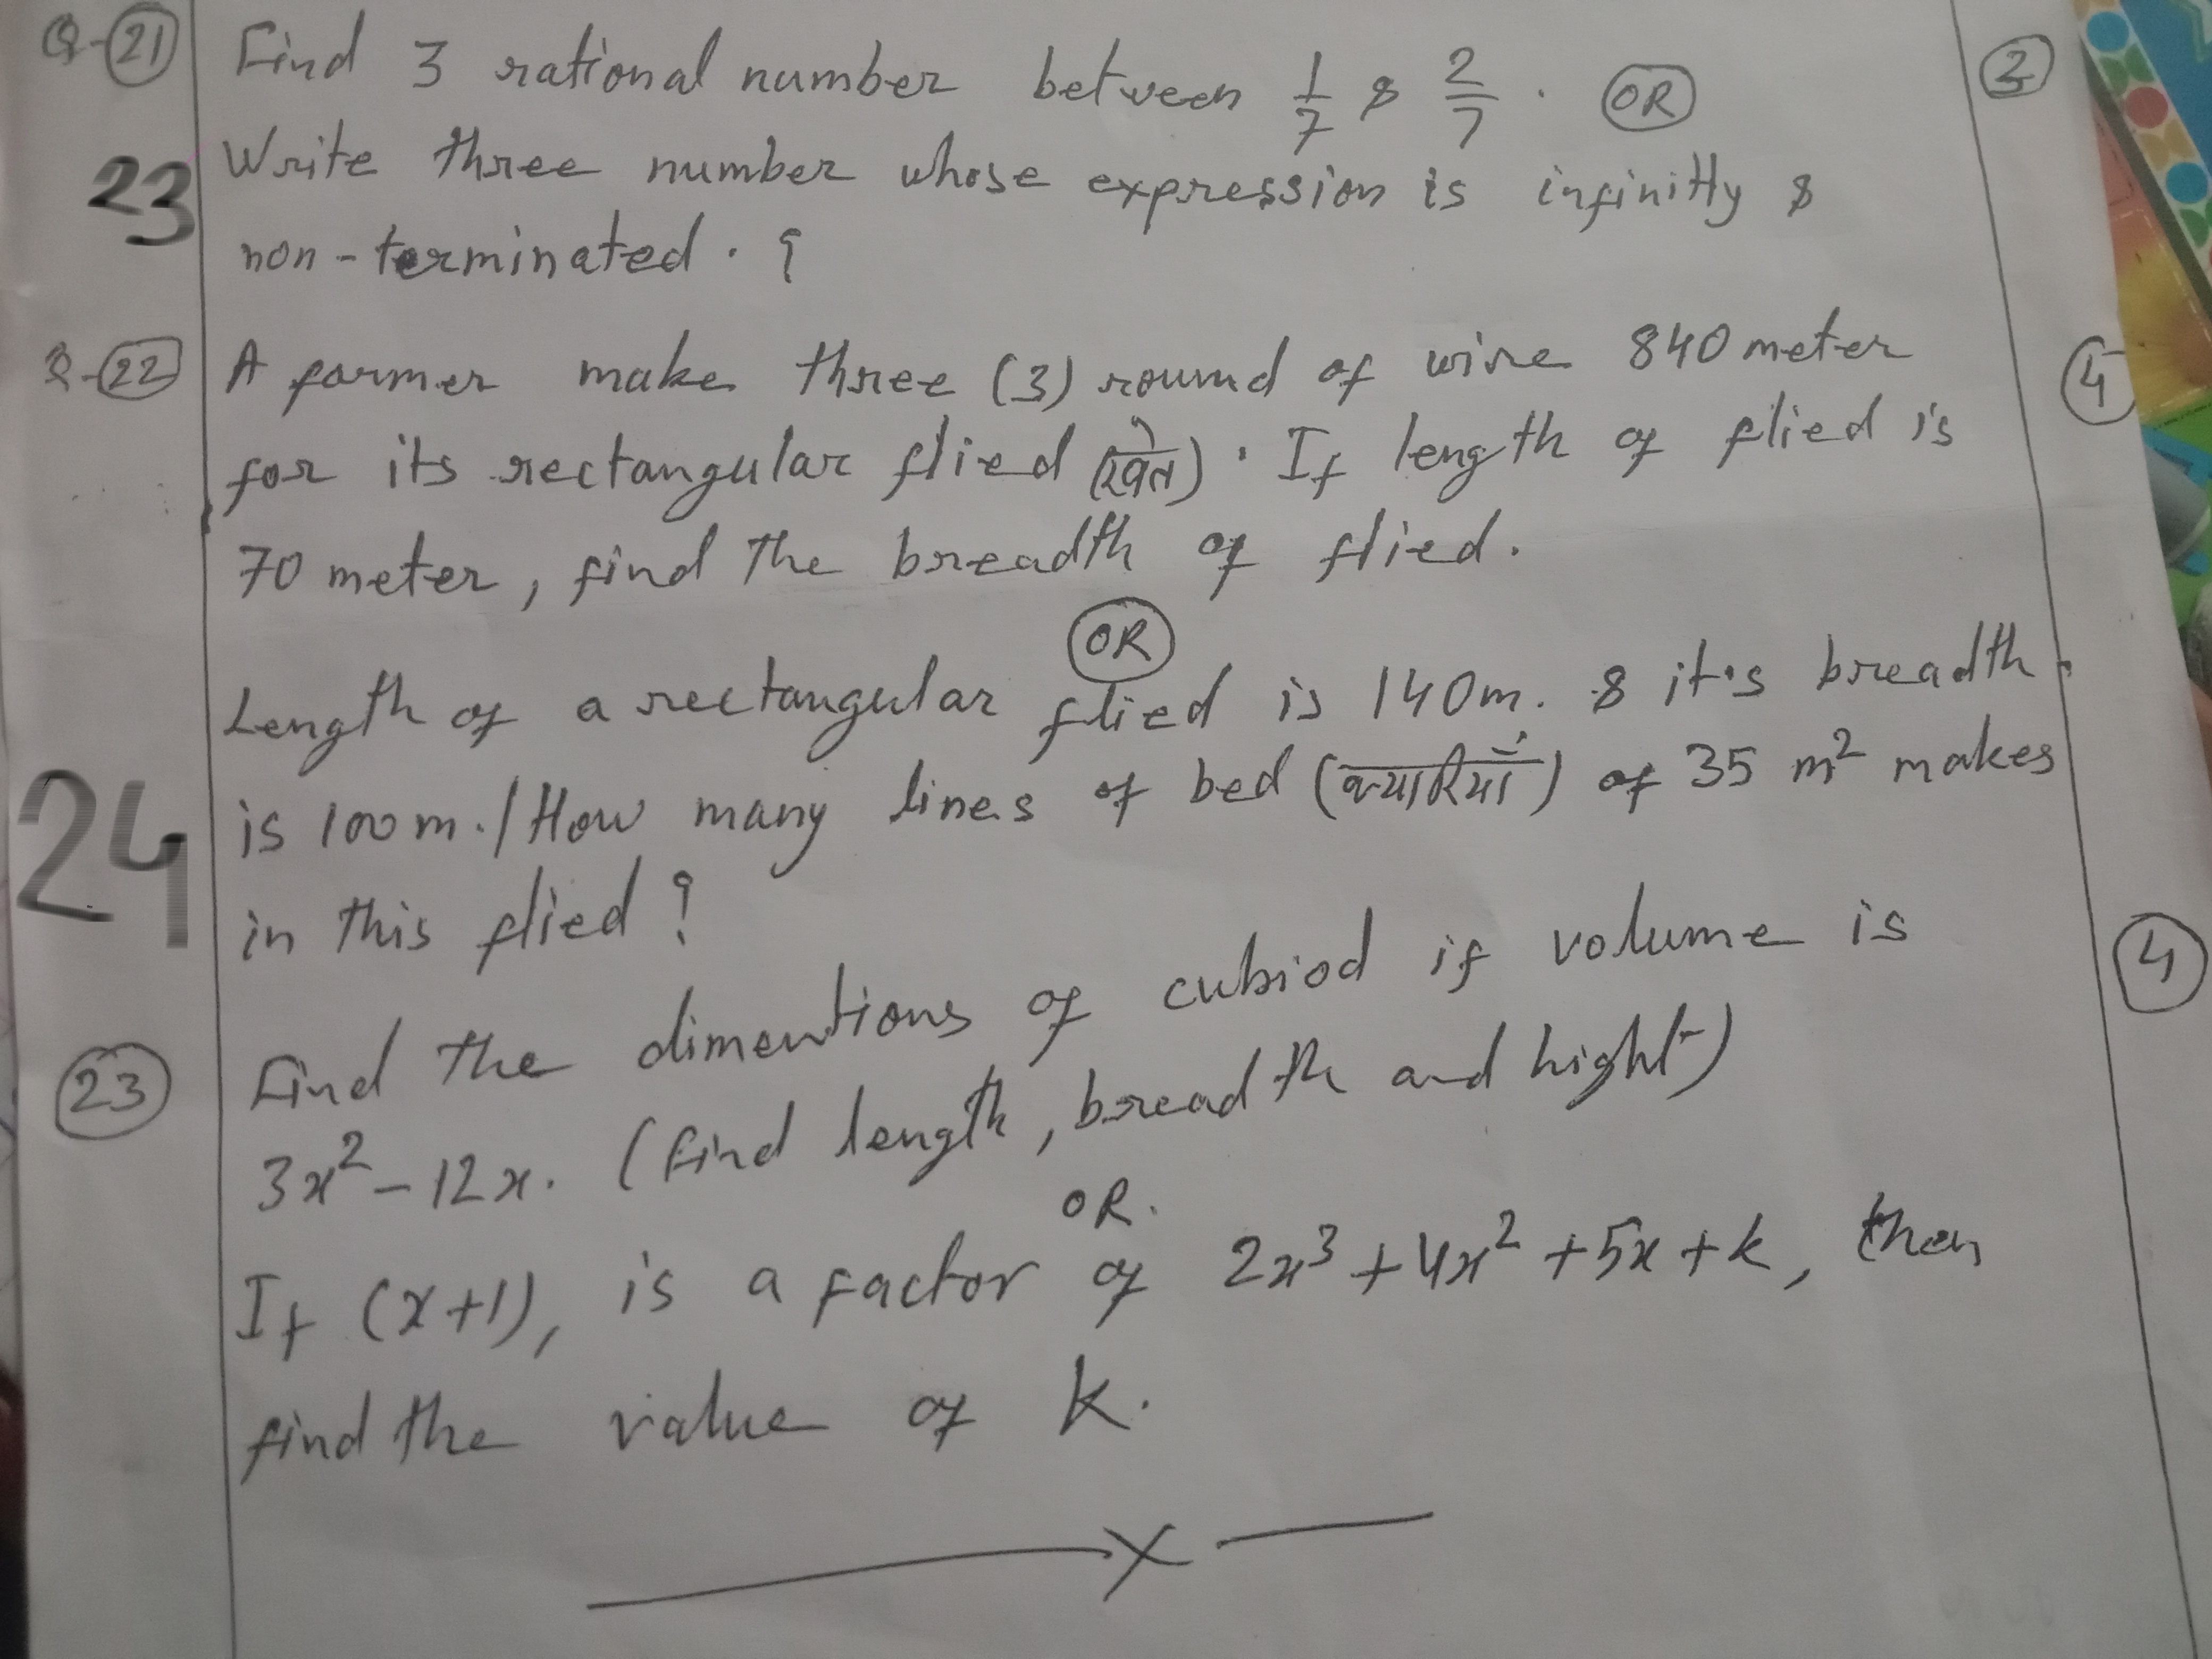 Q-21 Find 3 rational number between 1/7 & 2/7. OR 2
23 Write three number whose expression is infinitly &
non-terminated. ?
Q-22 A farmer make three (3) round of wire 840 meter 4
for its rectangular flied (खेत). If length of flied is
70 meter, find the breadth of flied.
OR
Length of a rectangular flied is 140m. & it's breadth
24 is 100m./How many lines of bed (क्यारियाँ) of 35 m² makes
in this flied ?
23 Find the dimentions of cubiod if volume is 4
3x² - 12x. (find length, breadth and hight)
OR.
If (x+1), is a factor of 2x³ + 4x² + 5x + k, then
find the value of k.
X